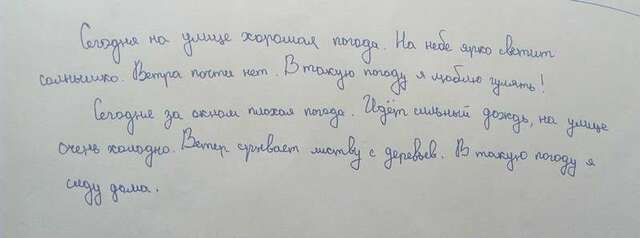 Сегодня на улице хорошая погода. На небе ярко светит
солнышко. Ветра почти нет. В такую погоду я люблю гулять!
Сегодня за окном плохая погода. Идёт сильный дождь, на улице
очень холодно. Ветер срывает листву с деревьев. В такую погоду я
сижу дома.